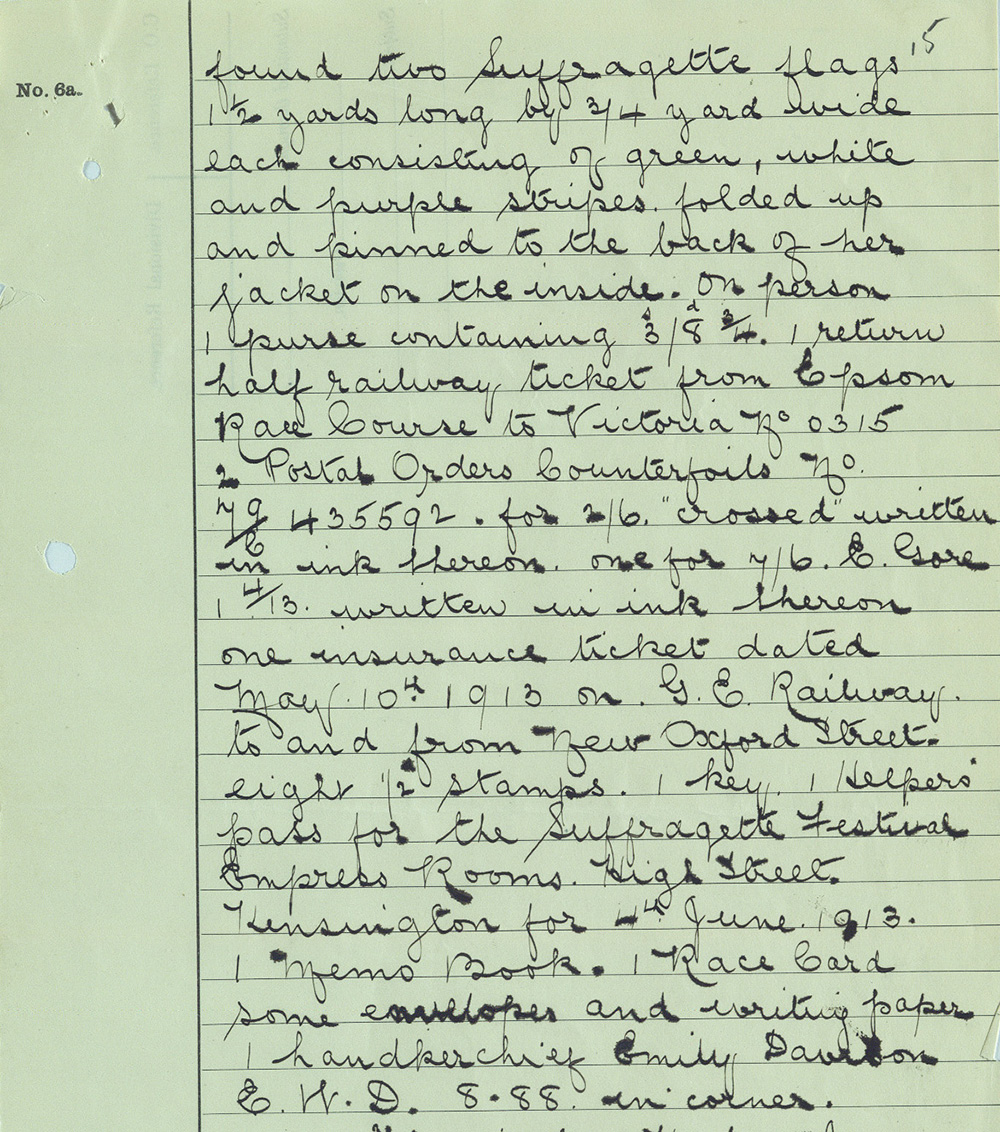 15
No. 6a.
found two Suffragette flags
1 1/2 yards long by 3/4 yard wide
each consisting of green, white
and purple stripes. folded up
and pinned to the back of her
jacket on the inside. On person
1 purse containing 3s/8d 3/4. 1 return
half railway ticket from Epsom
Race Course to Victoria No 0315
2 Postal Orders Counterfoils No.
435592. for 2/6. "crossed" written
in ink thereon. one for 7/6. E. Gore
1 4/13. written in ink thereon
one insurance ticket dated
May. 10th 1913 on. G. E. Railway.
to and from New Oxford Street.
eight 1/2d stamps. 1 key. 1 Helpers'
pass for the Suffragette Festival
Empress Rooms. High Street.
Kensington for 4th June. 1913.
1 Memo Book. 1 Race Card
some envelopes and writing paper
1 handkerchief Emily Davison
E. W. D. 8.88. in corner.